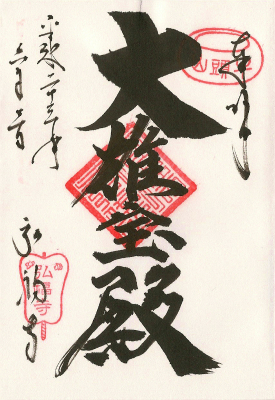 奉拝
大雄宝殿
平成二十三年
六月二日
弘福寺
弘福寺